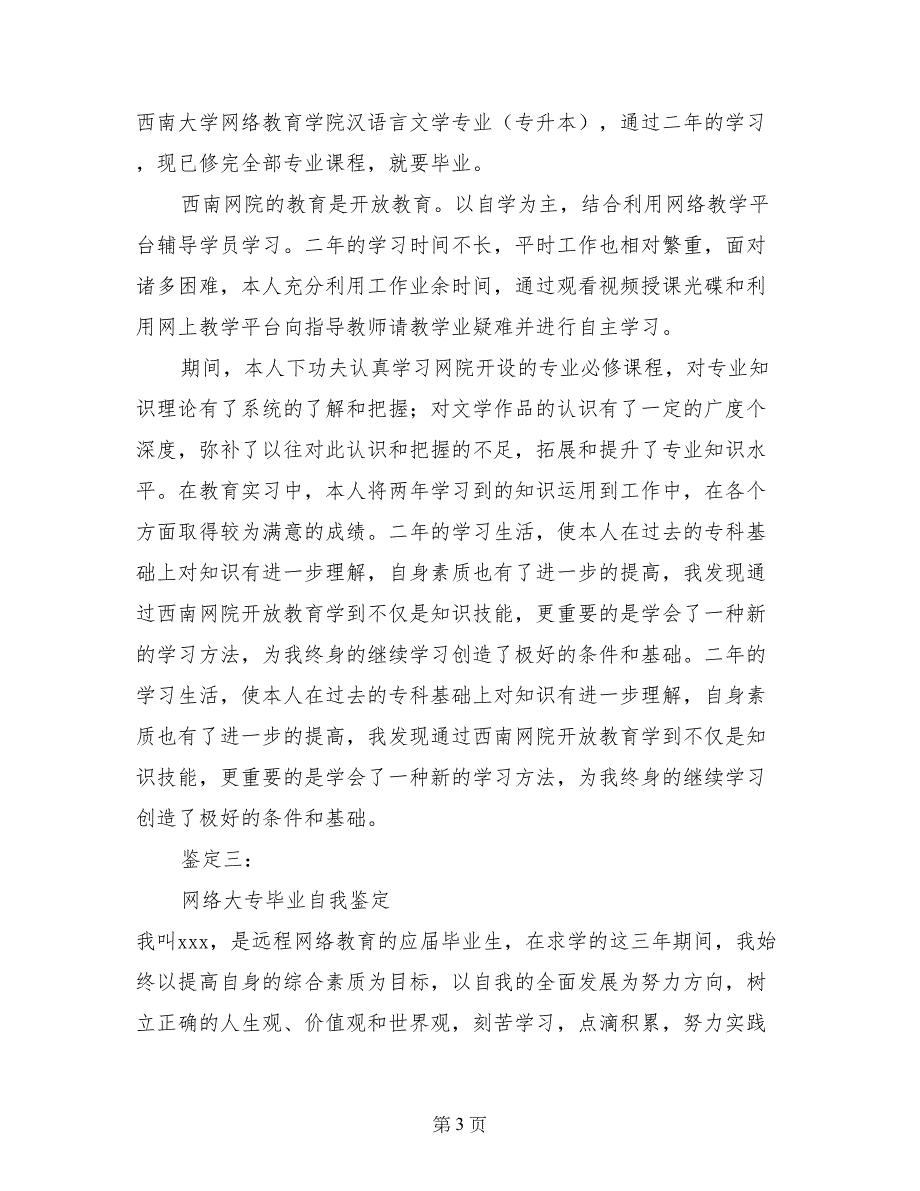 西南大学网络教育学院汉语言文学专业（专升本），通过二年的学习
，现已修完全部专业课程，就要毕业。
西南网院的教育是开放教育。以自学为主，结合利用网络教学平
台辅导学员学习。二年的学习时间不长，平时工作也相对繁重，面对
诸多困难，本人充分利用工作业余时间，通过观看视频授课光碟和利
用网上教学平台向指导教师请教学业疑难并进行自主学习。
期间，本人下功夫认真学习网院开设的专业必修课程，对专业知
识理论有了系统的了解和把握；对文学作品的认识有了一定的广度个
深度，弥补了以往对此认识和把握的不足，拓展和提升了专业知识水
平。在教育实习中，本人将两年学习到的知识运用到工作中，在各个
方面取得较为满意的成绩。二年的学习生活，使本人在过去的专科基
础上对知识有进一步理解，自身素质也有了进一步的提高，我发现通
过西南网院开放教育学到不仅是知识技能，更重要的是学会了一种新
的学习方法，为我终身的继续学习创造了极好的条件和基础。二年的
学习生活，使本人在过去的专科基础上对知识有进一步理解，自身素
质也有了进一步的提高，我发现通过西南网院开放教育学到不仅是知
识技能，更重要的是学会了一种新的学习方法，为我终身的继续学习
创造了极好的条件和基础。
鉴定三：
网络大专毕业自我鉴定
我叫xxx，是远程网络教育的应届毕业生，在求学的这三年期间，我始
终以提高自身的综合素质为目标，以自我的全面发展为努力方向，树
立正确的人生观、价值观和世界观，刻苦学习，点滴积累，努力实践
第 3 页